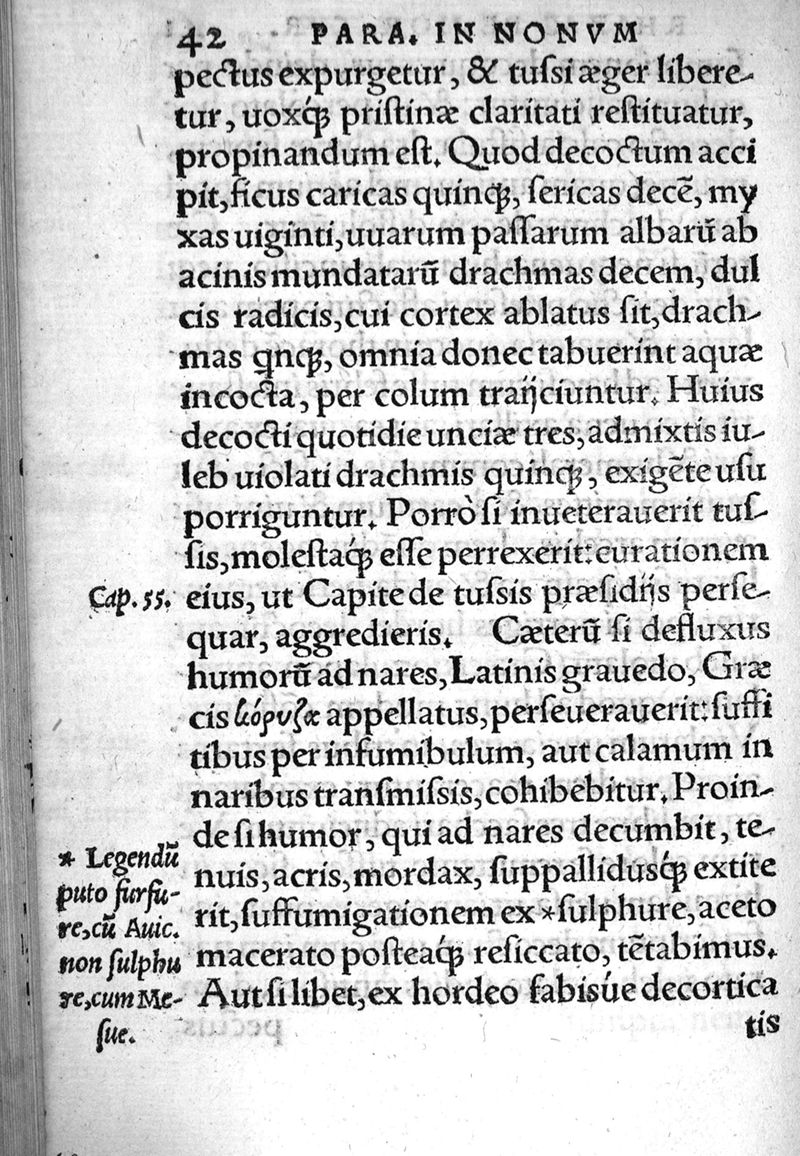 42 PARA. IN NONVM
pectus expurgetur, & tuſsi æger libere-
tur, uoxq́ꝫ priſtinæ claritati reſtituatur,
propinandum eſt. Quod decoctum acci
pit, ficus caricas quinqꝫ, ſericas decē, my
xas uiginti, uuarum paſſarum albarū ab
acinis mundatarū drachmas decem, dul
cis radicis, cui cortex ablatus ſit, drach-
mas qnqꝫ, omnia donec tabuerint aquæ
incocta, per colum traijciuntur. Huius
decocti quotidie unciæ tres, admixtis iu-
leb uiolati drachmis quinqꝫ, exigēte uſu
porriguntur. Porrò ſi inueterauerit tuſ-
ſis, moleſtaq́ꝫ eſſe perrexerit: curationem
Cap. 55. eius, ut Capite de tuſsis præſidijs perſe-
quar, aggredieris. Cæterū ſi defluxus
humorū ad nares, Latinis grauedo, Græ
cis κόρυζα appellatus, perſeuerauerit: ſuffi
tibus per infumibulum, aut calamum in
naribus tranſmiſsis, cohibebitur. Proin-
de ſi humor, qui ad nares decumbit, te-
nuis, acris, mordax, ſuppallidusq́ꝫ extite
rit, ſuffumigationem ex *ſulphure, aceto
macerato poſteaq́ꝫ reſiccato, tētabimus.
Aut ſi libet, ex hordeo fabisúe decortica
tis
* Legendū
puto furfu-
re, cū Auic.
non ſulphu
re, cum Me-
ſue.